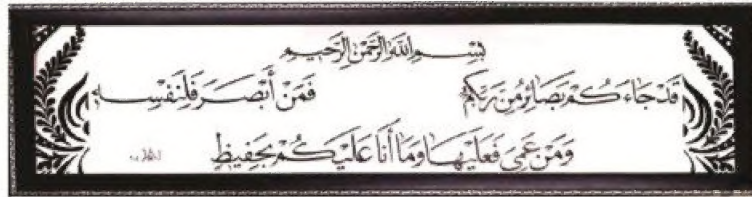 بِسْمِ اللَّهِ الرَّحْمَنِ الرَّحِيمِ
قَدْ جَاءَكُمْ بَصَائِرُ مِنْ رَبِّكُمْ فَمَنْ أَبْصَرَ فَلِنَفْسِهِ
وَمَنْ عَمِيَ فَعَلَيْهَا وَمَا أَنَا عَلَيْكُمْ بِحَفِيظٍ